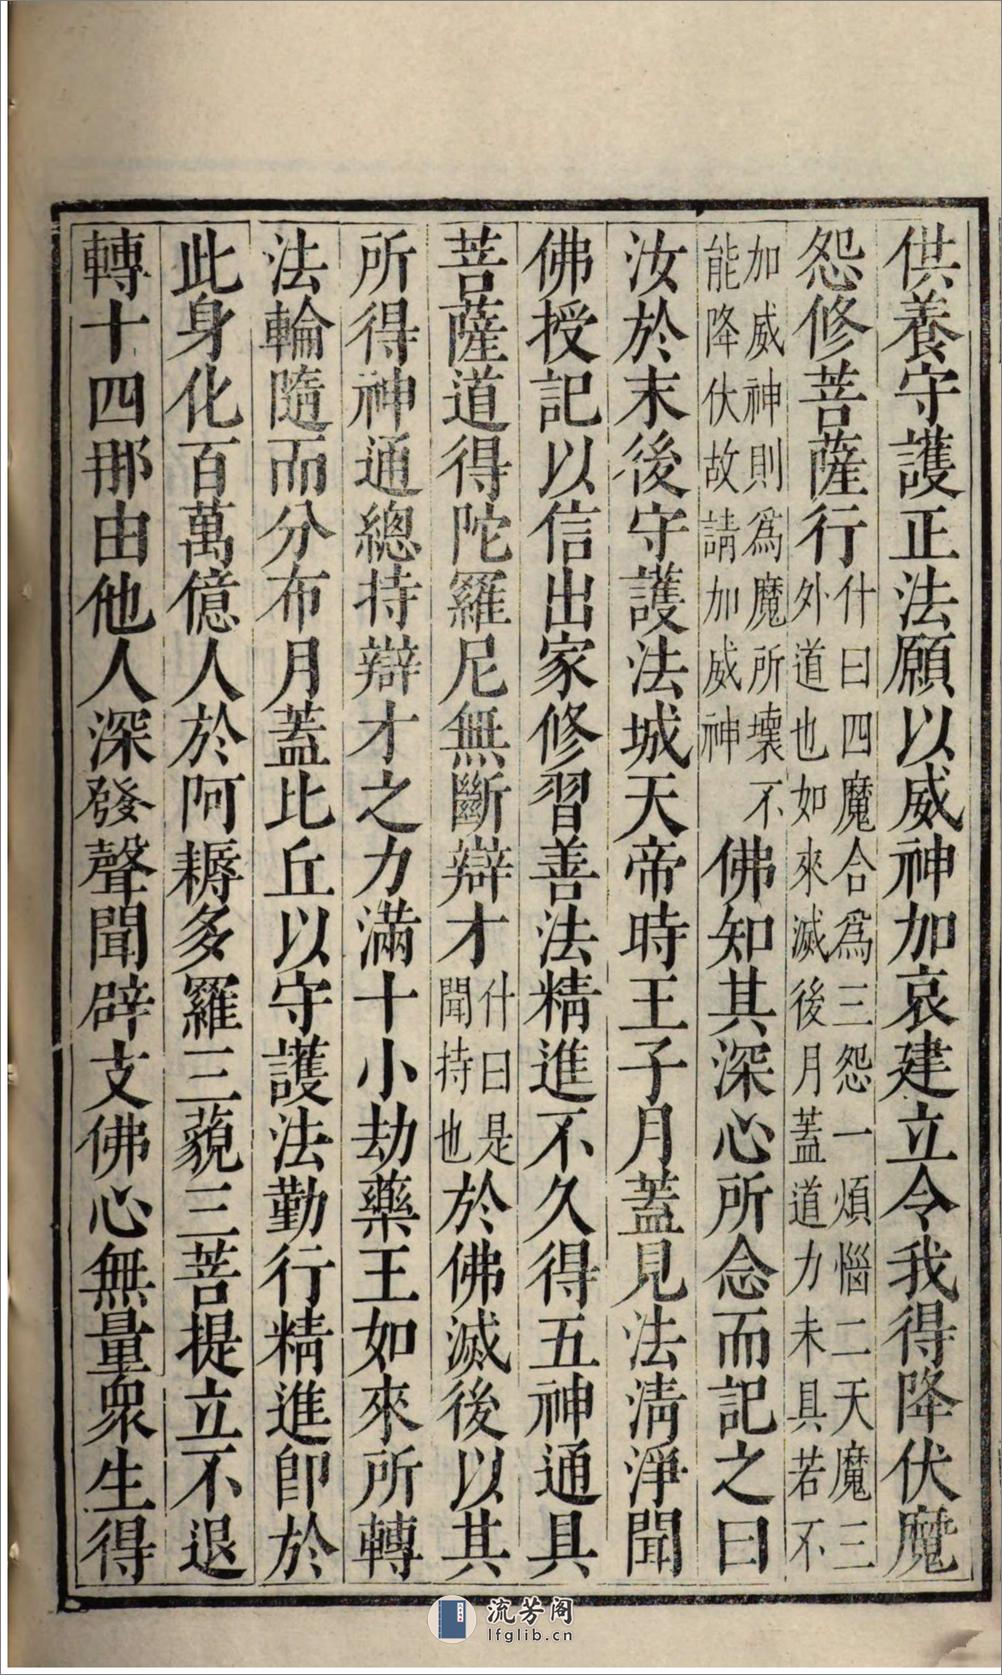 供養守護正法願以威神加哀建立令我得降伏魔
怨修菩薩行什曰四魔合爲三怨一煩惱二天魔三外道也如來滅後月蓋道力未具若不
加威神則爲魔所壞不能降伏故請加威神佛知其深心所念而記之曰
汝於末後守護法城天帝時王子月蓋見法淸淨聞
佛授記以信出家修習善法精進不久得五神通具
菩薩道得陀羅尼無斷辯才什曰是聞持也於佛滅後以其
所得神通總持辯才之力滿十小劫藥王如來所轉
法輪隨而分布月蓋比丘以守護法勤行精進卽於
此身化百萬億人於阿耨多羅三藐三菩提立不退
轉十四那由他人深發聲聞辟支佛心無量衆生得
流芳阁
lfglib.cn